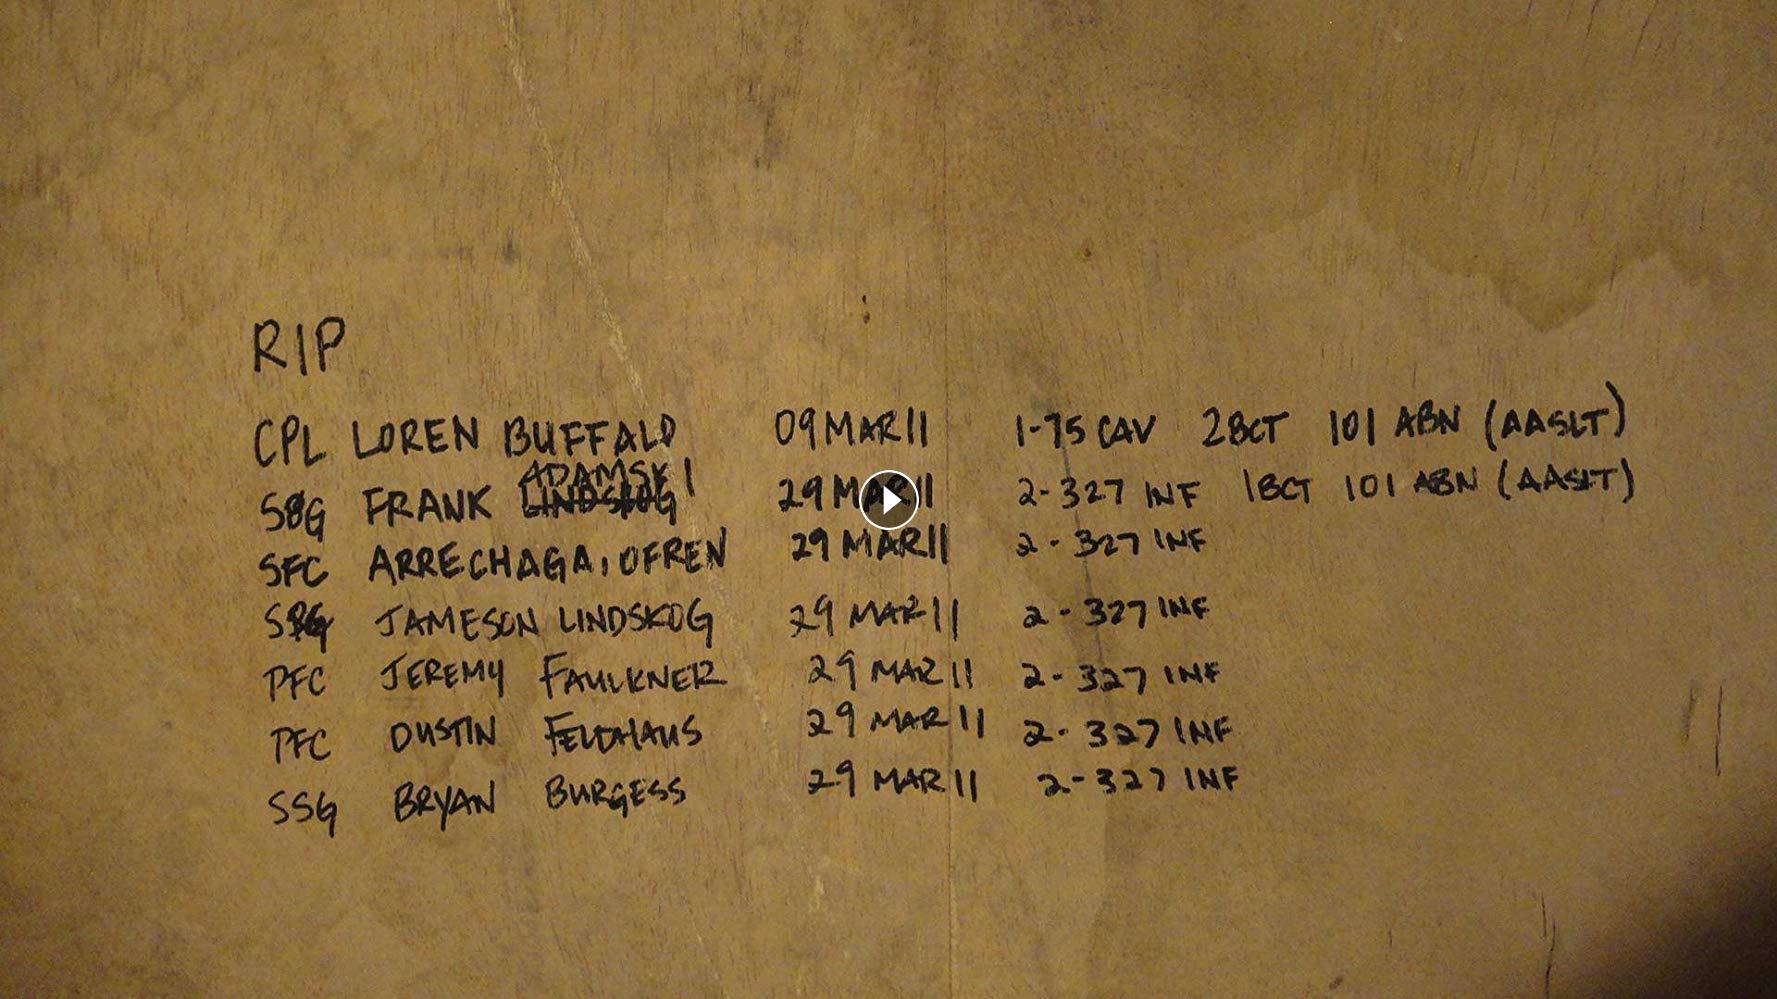 RIP
CPL LOREN BUFFALO 09 MAR 11 1-75 CAV 2BCT 101 ABN (AASLT)
FRANK ADAMSKI 29 MAR 11 2-327 INF 1BCT 101 ABN (AASLT)
SFC ARRECHAGA, OFREN 29 MAR 11 2-327 INF
JAMESON LINDSKOG 29 MAR 11 2-327 INF
PFC JEREMY FAULKNER 29 MAR 11 2-327 INF
PFC DUSTIN FELDHAUS 29 MAR 11 2-327 INF
SSG BRYAN BURGESS 29 MAR 11 2-327 INF